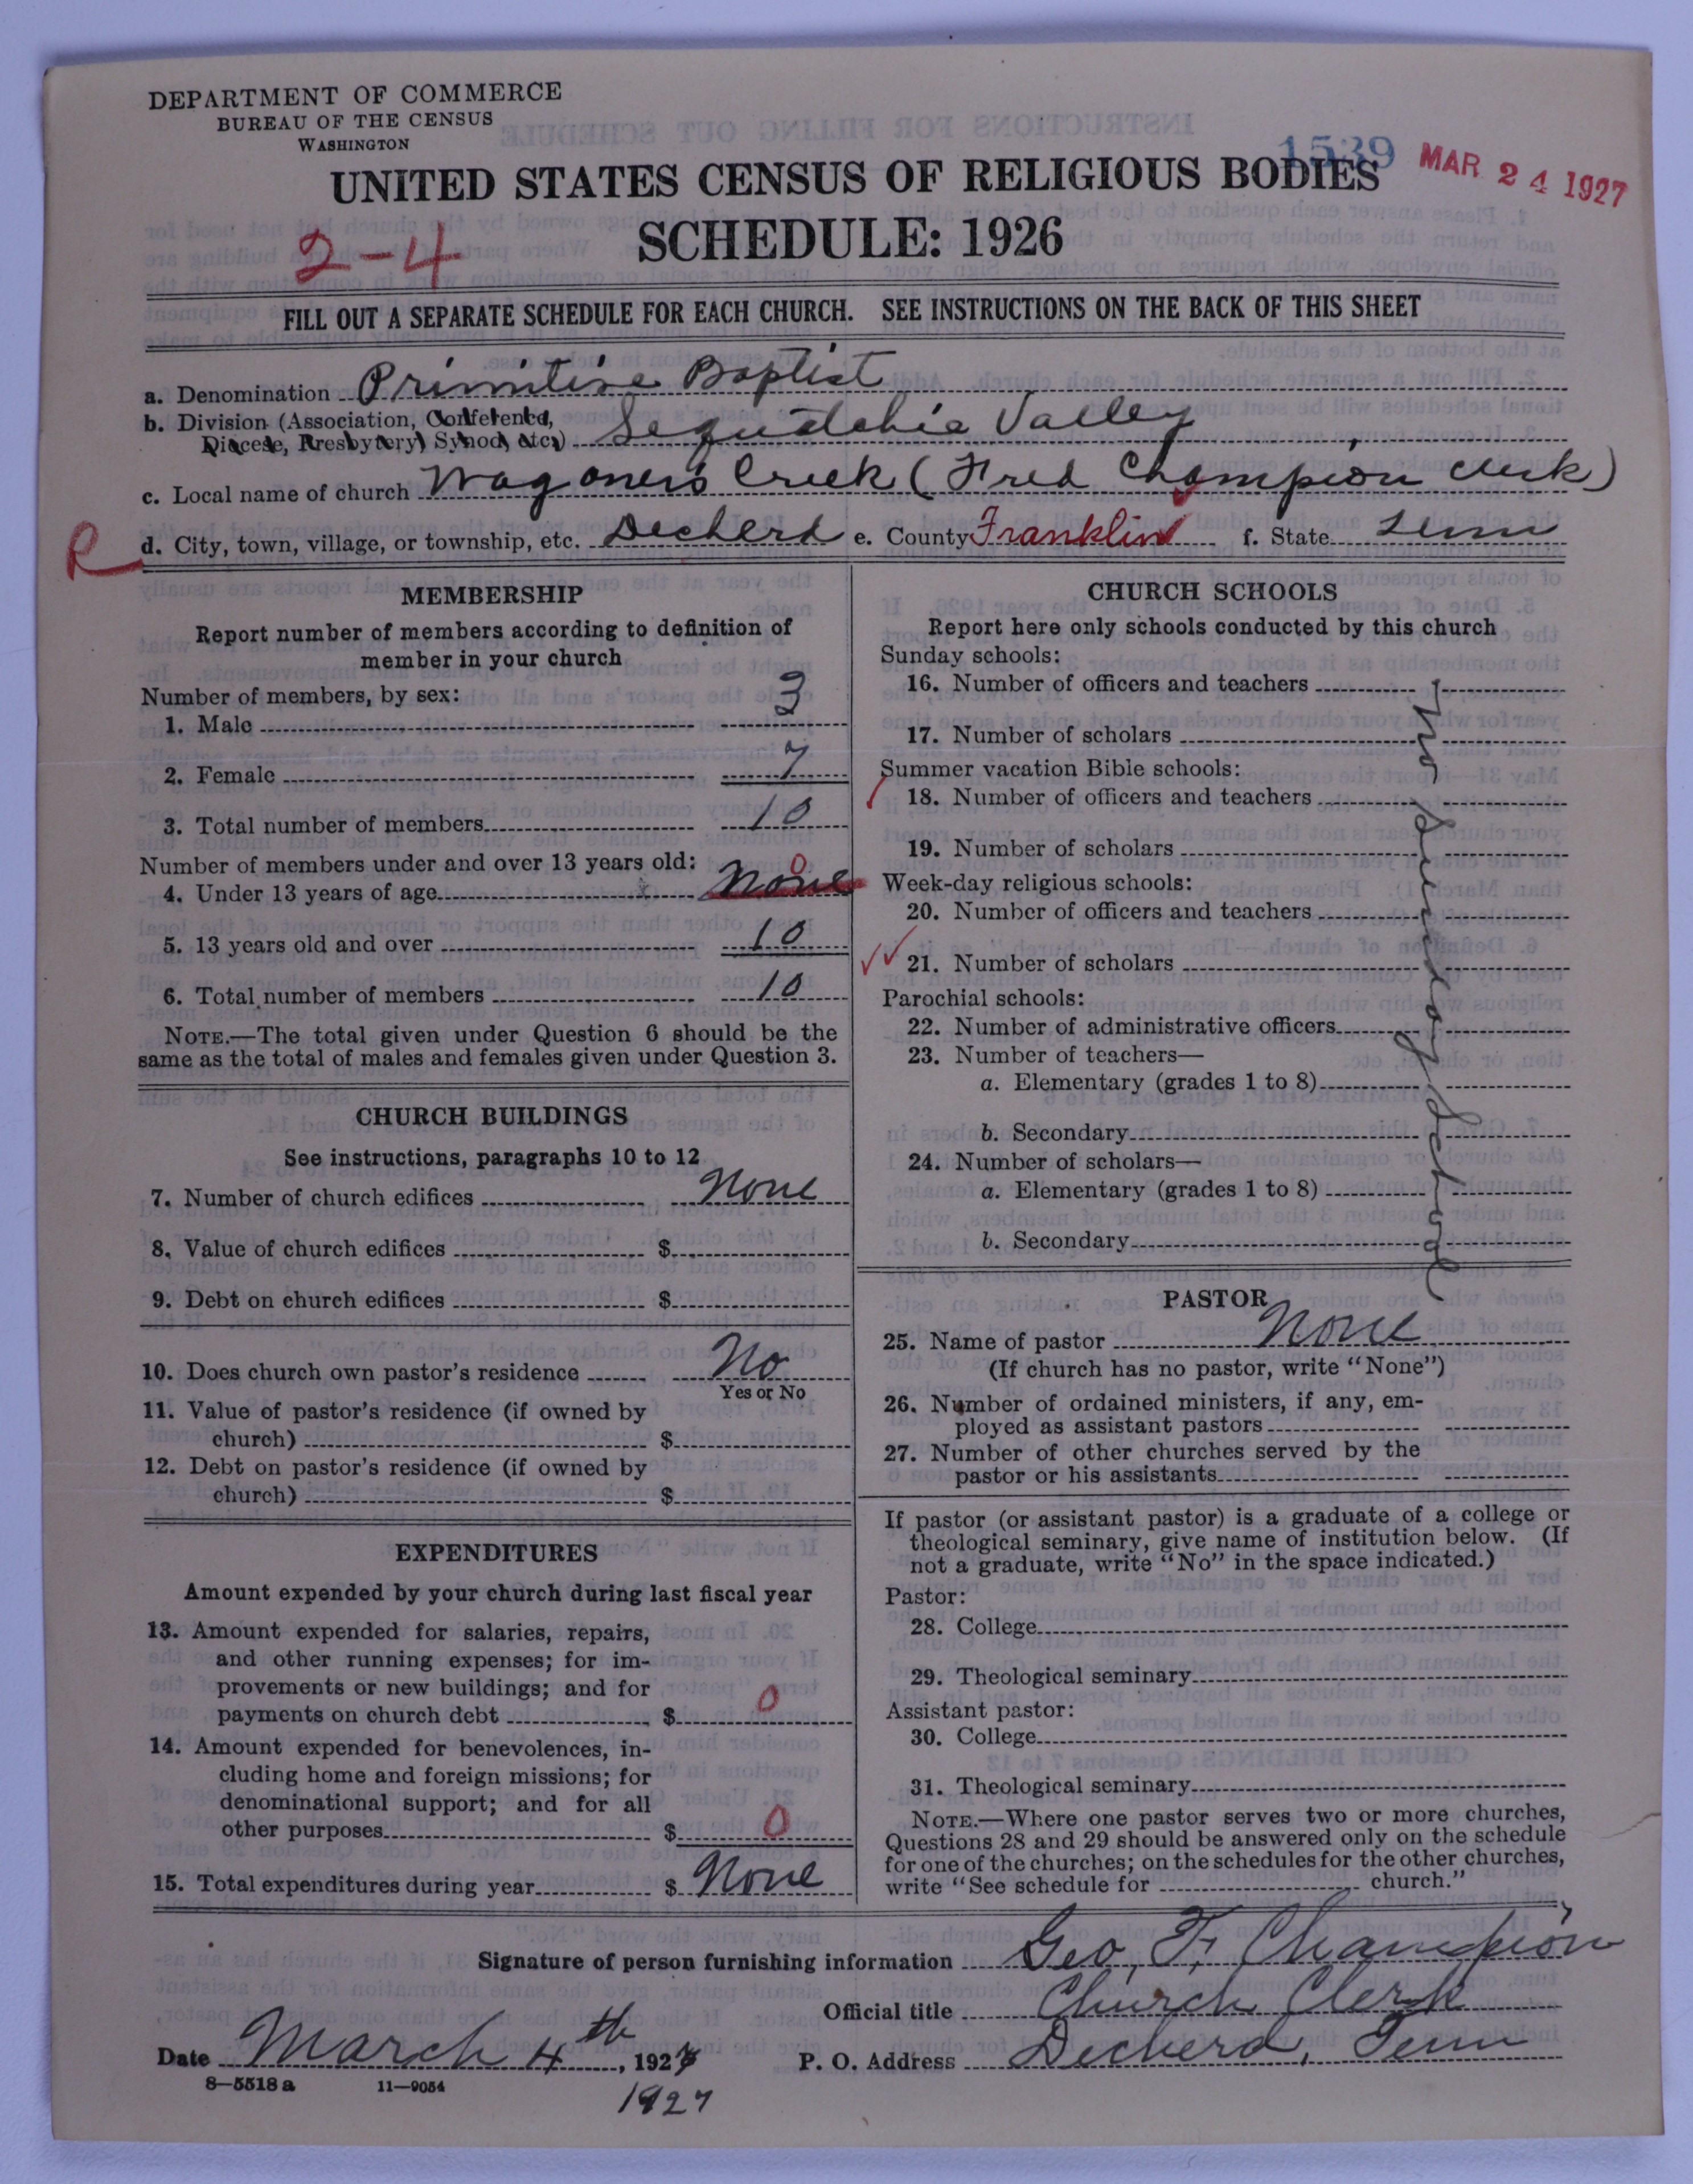 DEPARTMENT OF COMMERCE
BUREAU OF THE CENSUS
WASHINGTON
1539 MAR 24 1927
UNITED STATES CENSUS OF RELIGIOUS BODIES
SCHEDULE: 1926
2-4
FILL OUT A SEPARATE SCHEDULE FOR EACH CHURCH. SEE INSTRUCTIONS ON THE BACK OF THIS SHEET
a. Denomination Primitive Baptist
b. Division (Association, Conference,
Diocese, Presbytery, Synod, etc.) Sequatchie Valley
c. Local name of church Wagoner's Creek (Fred Champion Clerk)
R d. City, town, village, or township, etc. Decherd e. County Franklin f. State Tenn
MEMBERSHIP
Report number of members according to definition of
member in your church
Number of members, by sex:
1. Male 3
2. Female 7
3. Total number of members 10
Number of members under and over 13 years old:
4. Under 13 years of age None 0
5. 13 years old and over 10
6. Total number of members 10
NOTE.—The total given under Question 6 should be the
same as the total of males and females given under Question 3.
CHURCH BUILDINGS
See instructions, paragraphs 10 to 12
7. Number of church edifices None
8. Value of church edifices $
9. Debt on church edifices $
10. Does church own pastor's residence No
Yes or No
11. Value of pastor's residence (if owned by
church) $
12. Debt on pastor's residence (if owned by
church) $
EXPENDITURES
Amount expended by your church during last fiscal year
13. Amount expended for salaries, repairs,
and other running expenses; for im-
provements or new buildings; and for
payments on church debt $ 0
14. Amount expended for benevolences, in-
cluding home and foreign missions; for
denominational support; and for all
other purposes $ 0
15. Total expenditures during year $ None
CHURCH SCHOOLS
Report here only schools conducted by this church
Sunday schools:
16. Number of officers and teachers
17. Number of scholars
Summer vacation Bible schools:
18. Number of officers and teachers
19. Number of scholars
Week-day religious schools:
20. Number of officers and teachers
21. Number of scholars
Parochial schools:
22. Number of administrative officers
23. Number of teachers—
a. Elementary (grades 1 to 8)
b. Secondary
24. Number of scholars—
a. Elementary (grades 1 to 8)
b. Secondary
PASTOR
25. Name of pastor None
(If church has no pastor, write "None")
26. Number of ordained ministers, if any, em-
ployed as assistant pastors
27. Number of other churches served by the
pastor or his assistants
If pastor (or assistant pastor) is a graduate of a college or
theological seminary, give name of institution below. (If
not a graduate, write "No" in the space indicated.)
Pastor:
28. College
29. Theological seminary
Assistant pastor:
30. College
31. Theological seminary
NOTE.—Where one pastor serves two or more churches,
Questions 28 and 29 should be answered only on the schedule
for one of the churches; on the schedules for the other churches,
write "See schedule for church."
Signature of person furnishing information Geo, F, Champion
Official title Church Clerk
Date March 4th, 1927 P. O. Address Decherd, Tenn
8—5518 a 11—9054
1927